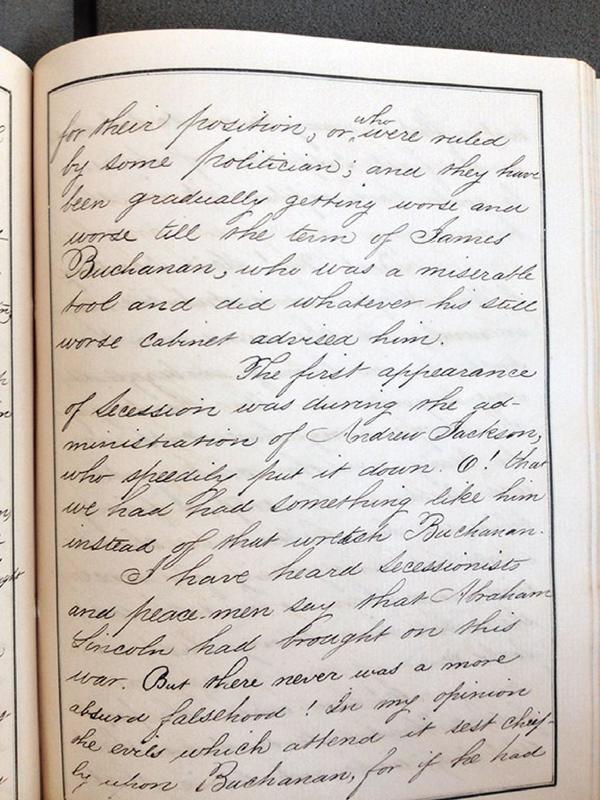 for their position, or who were ruled
by some politician; and they have
been gradually getting worse and
worse till the term of James
Buchanan, who was a miserable
tool and did whatever his still
worse cabinet advised him.
The first appearance
of Secession was during the ad-
ministration of Andrew Jackson,
who speedily put it down. O! that
we had had something like him
instead of that wretch Buchanan.
I have heard Secessionists
and peace-men say that Abraham
Lincoln had brought on this
war. But there never was a more
absurd falsehood! In my opinion
the evils which attend it rest chief-
ly upon Buchanan, for if he had